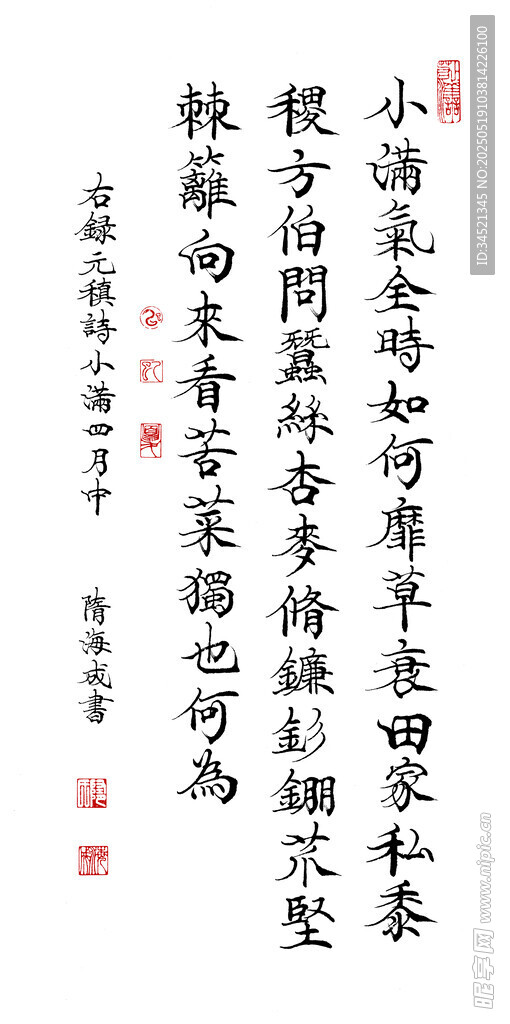 小滿氣全時如何靡草衰田家私黍
稷方伯問蠶絲杏麥脩鐮釤錋堅
棘籬向來看苦菜獨也何為
右録元稹詩小滿四月中 隋海成書
ID:34521345 NO:20250519103814226100
昵享网 www.nipic.cn